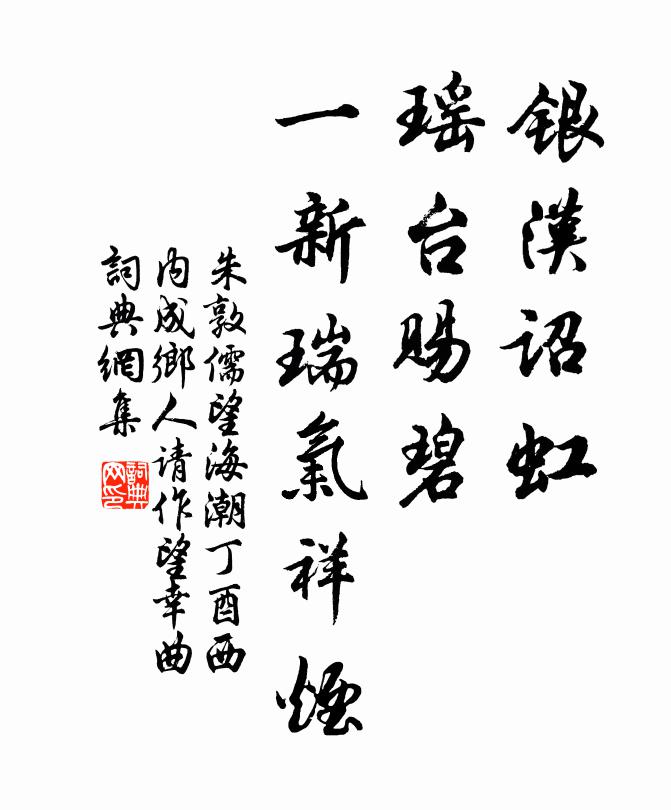 銀漢詔虹
瑶台賜碧
一新瑞氣祥煙
朱敦儒望海潮丁酉西
内成鄉人请作望幸曲
詞典網集
詞典
网印